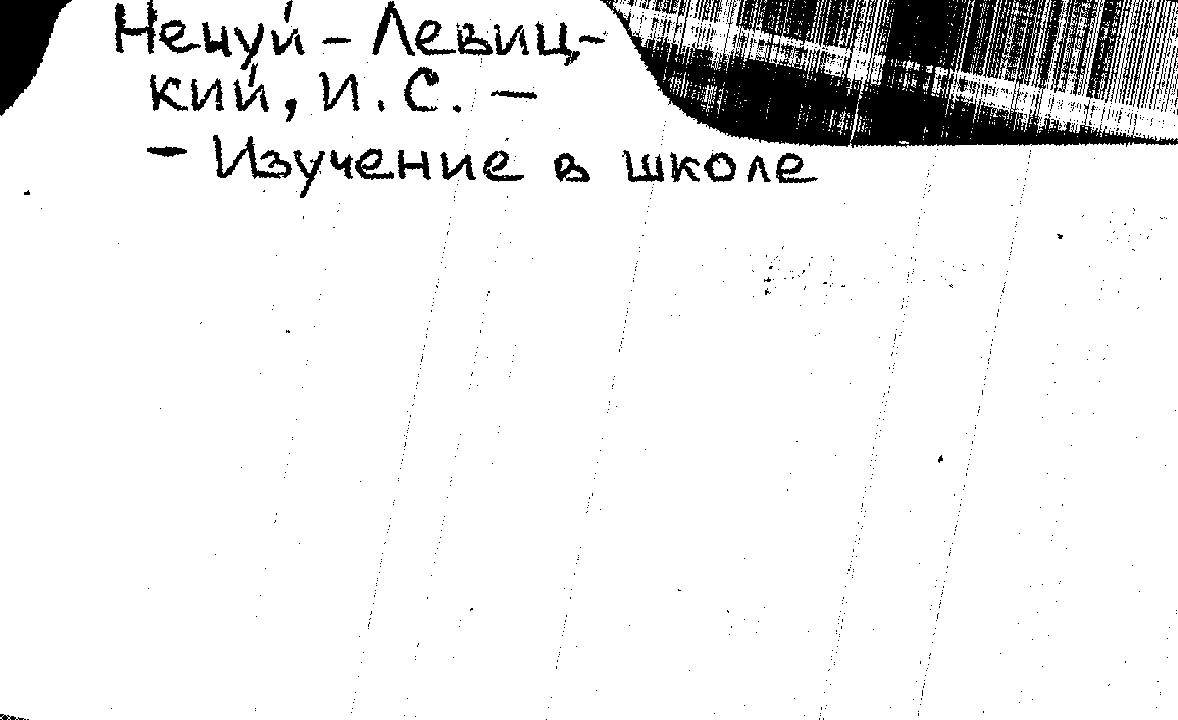 Нечуй - Левиц-
кий, И. С. –
– Изучение в школе